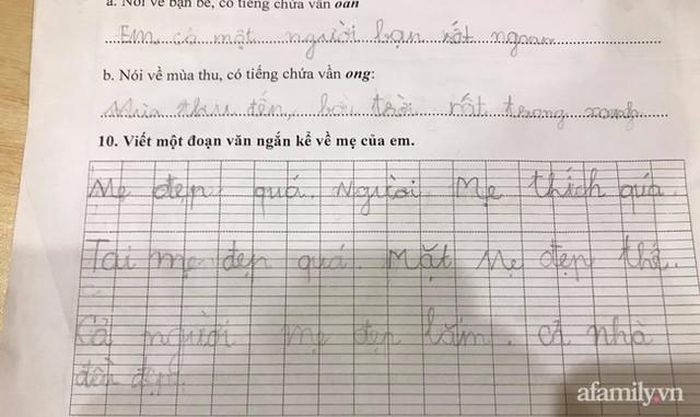 a. Nói về bạn bè, có tiếng chứa vần oan
Em có một người bạn rất ngoan
b. Nói về mùa thu, có tiếng chứa vần ong:
Mùa thu đến, bầu trời rất trong xanh
10. Viết một đoạn văn ngắn kể về mẹ của em.
Mẹ đẹp quá. Người Mẹ thích quá.
Tai mẹ đẹp quá. Mặt Mẹ đẹp thế.
Cả người mẹ đẹp lắm. cả nhà
đều đẹp.
afamily.vn